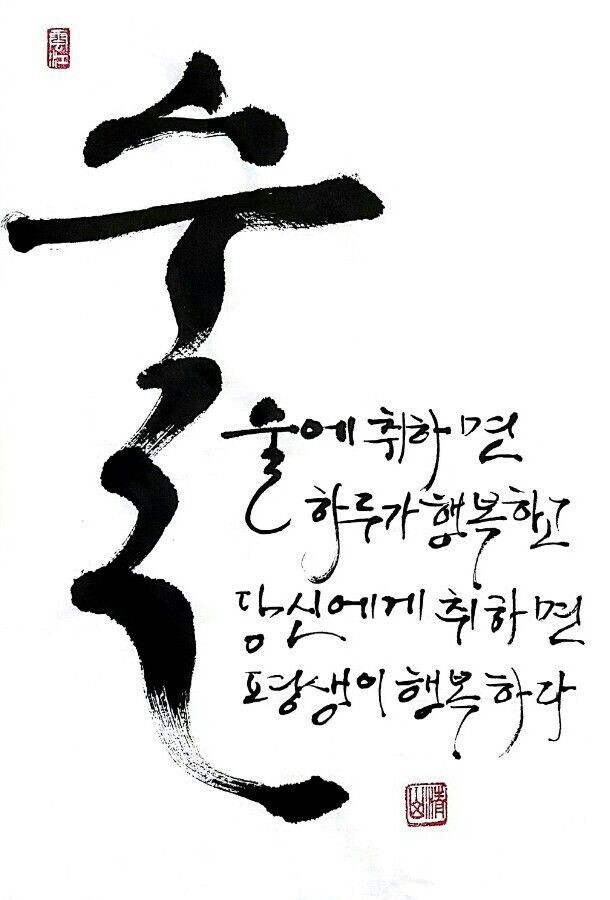 술
술에 취하면
하루가 행복하고
당신에게 취하면
평생이 행복하다